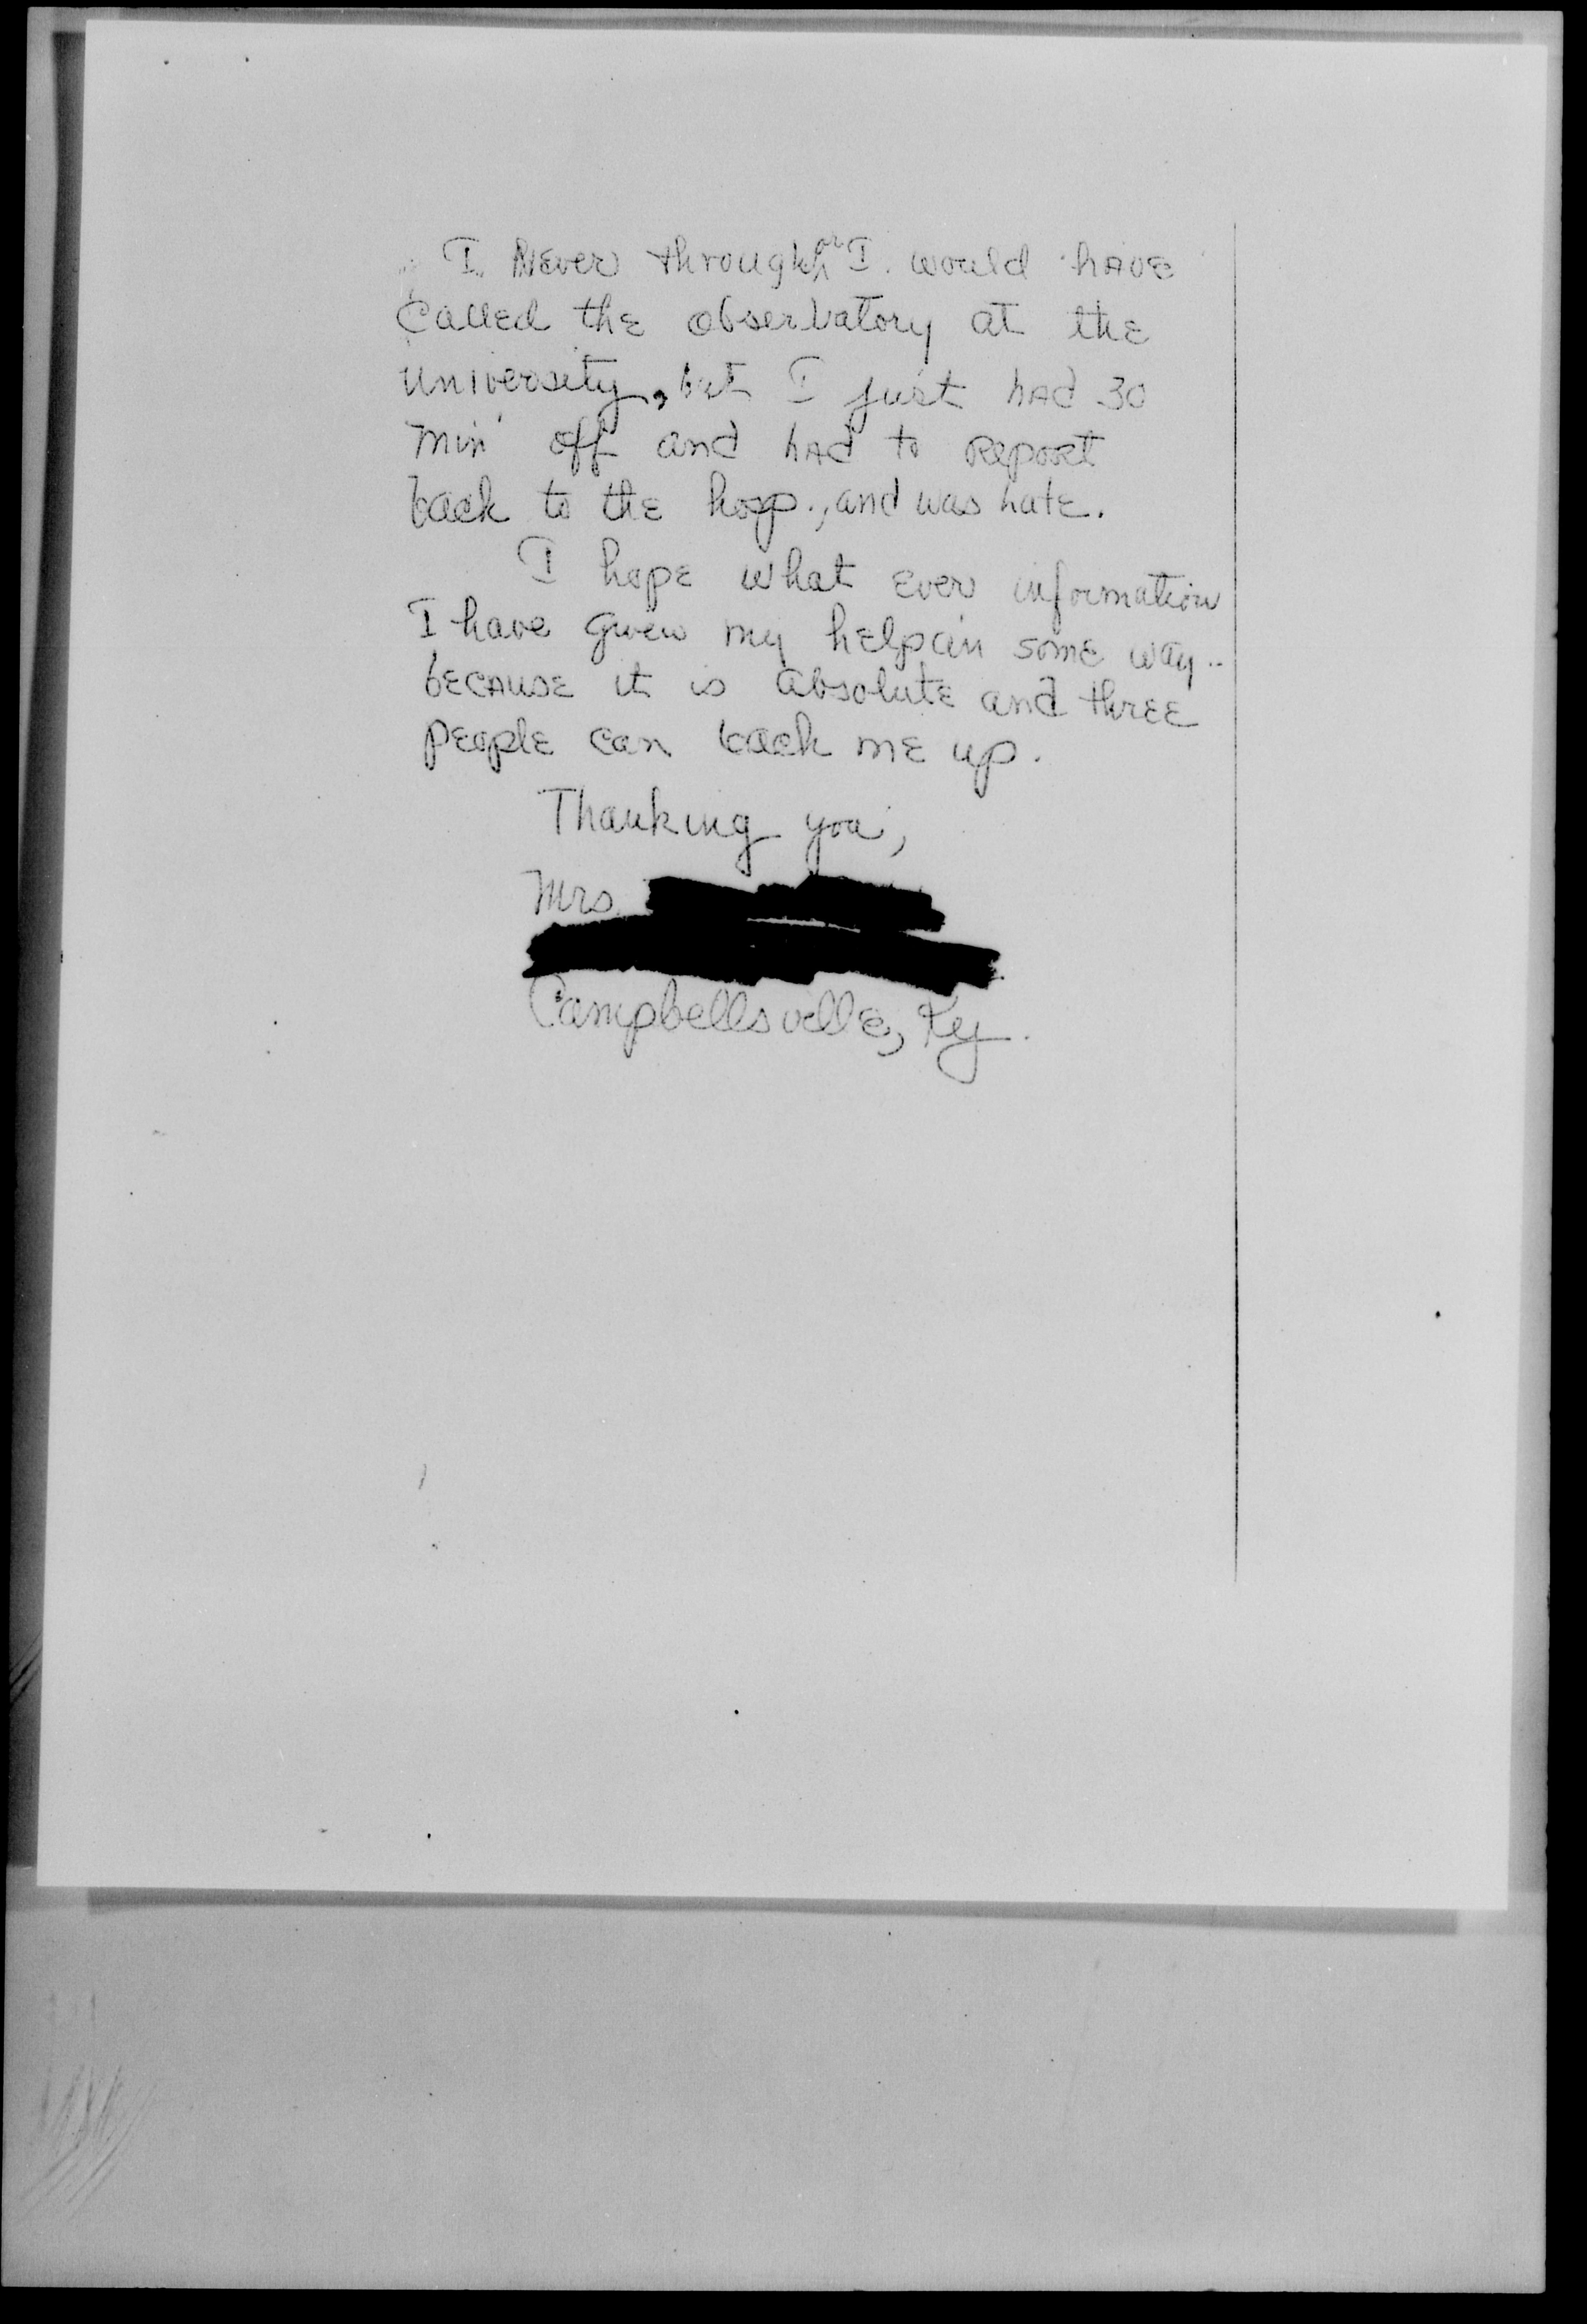 I Never through or I. would have
Called the observatory at the
University, but I just had 30
min off and had to Report
back to the hosp., and was late.
I hope what ever information
I have given my help in some way..
because it is absolute and three
people can back me up.
Thanking you,
Mrs.
Campbellsville, Ky.